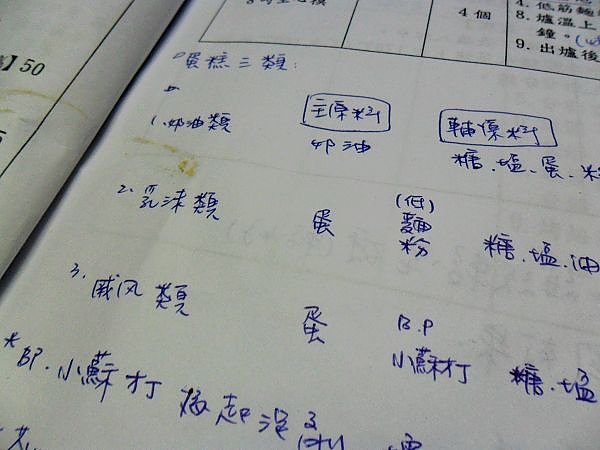 4 個
4. 低筋麵
8. 爐溫上
鐘。
9. 出爐後
】50
蛋糕三類:
主原料 輔原料
1. 奶油類 奶油 糖.塩.蛋.
2. 乳沫類 蛋 (低)麵粉 糖.塩.油
3. 戚风類 蛋 B.P 小蘇打 糖.塩
*BP.小蘇打